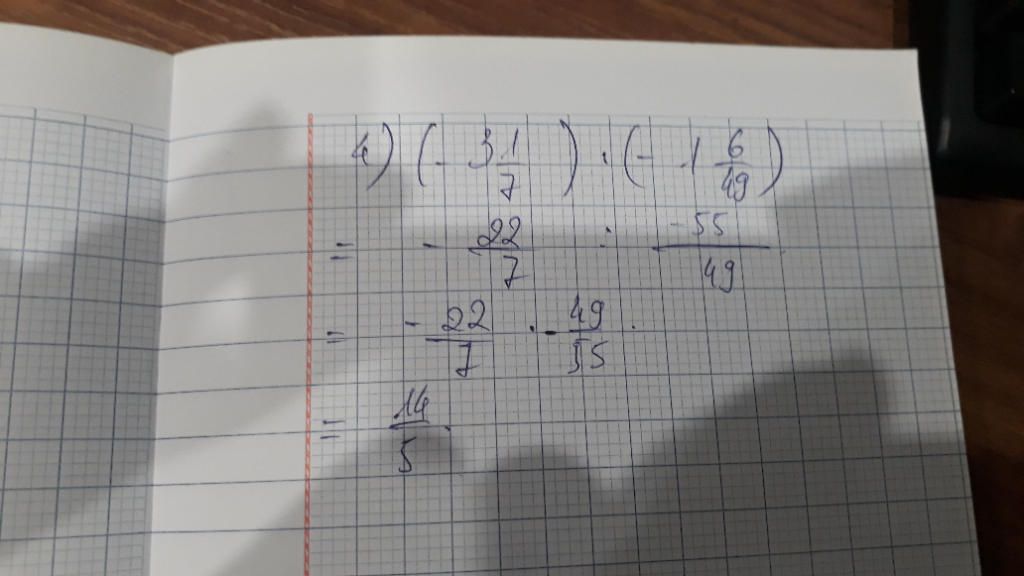 4) (- 3 1/7) : (- 1 6/49)
= - 22/7 : -55/49
= - 22/7 · - 49/55 .
= 14/5 .